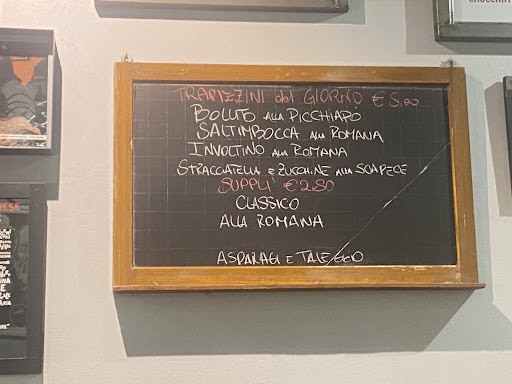 TRAPIZZINI del GIORNO € 5,00
BOLLITO ALLA PICCHIAPÒ
SALTIMBOCCA ALLA ROMANA
INVOLTINO ALLA ROMANA
STRACCIATELLA E ZUCCHINE ALLA SCAPECE
SUPPLI' € 2.80
CLASSICO
ALLA ROMANA
ASPARAGI E TALEGGIO